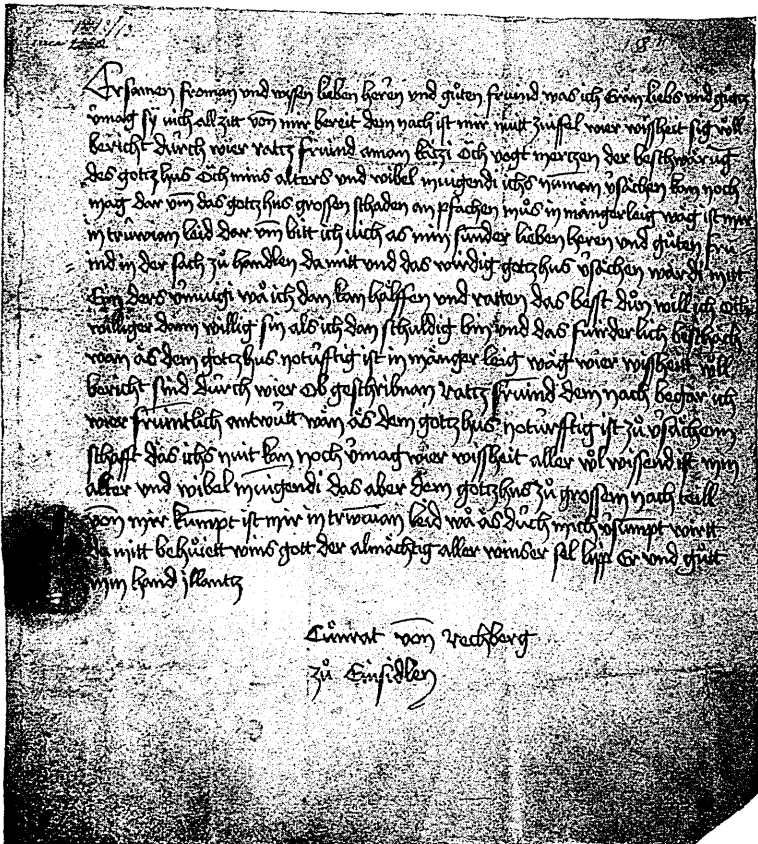 Ersamen froman vnd wysen lieben heren vnd gůten fruind was ich Eran liebs vnd gůtz
vmag sy uich all zitt von mir bereit dem nach ist mir nuitt zwifel wier wyssheit sig woll
bericht durch wier ratz fruind aman kätzi Och vogt mertzen der beschwärug
des gotz hus Och mins alters vnd wibel muigendi ichs numan vsächen kan noch
mag dar vm das gotz hus grossen schaden an pfachen můs in mänger leig wäg ist mir
in truwian leid dar vm bitt ich uich as min sunder lieben heren vnd gůten frui
nd in der sach zů handlen da mitt vnd das wirdig gotz hus vsächen wärdi mitt
Ein ders vmuigi wä ich dan kan hälffen vnd ratten das best důn will ich Och
williger dann willig sin als ich dan schuldig bin vnd das sunderlich beschäch
wan äs dem gotz hus notuftig ist in mänger leig wäg wier wissheitt woll
bericht sind durch wier Ob geschribnan ratz fruind dem nach begär ich
wier fruintlich antwůrtt wän äs dem gotz hus notůrfftig ist zů vsächenn
schafft das ichs nuit kan noch vmag wier wissheit aller wol wissend ist min
alter vnd wibel muigendi das aber dem gotzhus zů grossem nach teill
von mir kumpt ist mir in truwian leid wä äs durch mich vsumpt wirtt
da mitt behuiett wins gott der almächtig aller winser sel lipp Er vnd gůtt
min hand yllantz
Cůnrat von rechberg
zů Einsidlen